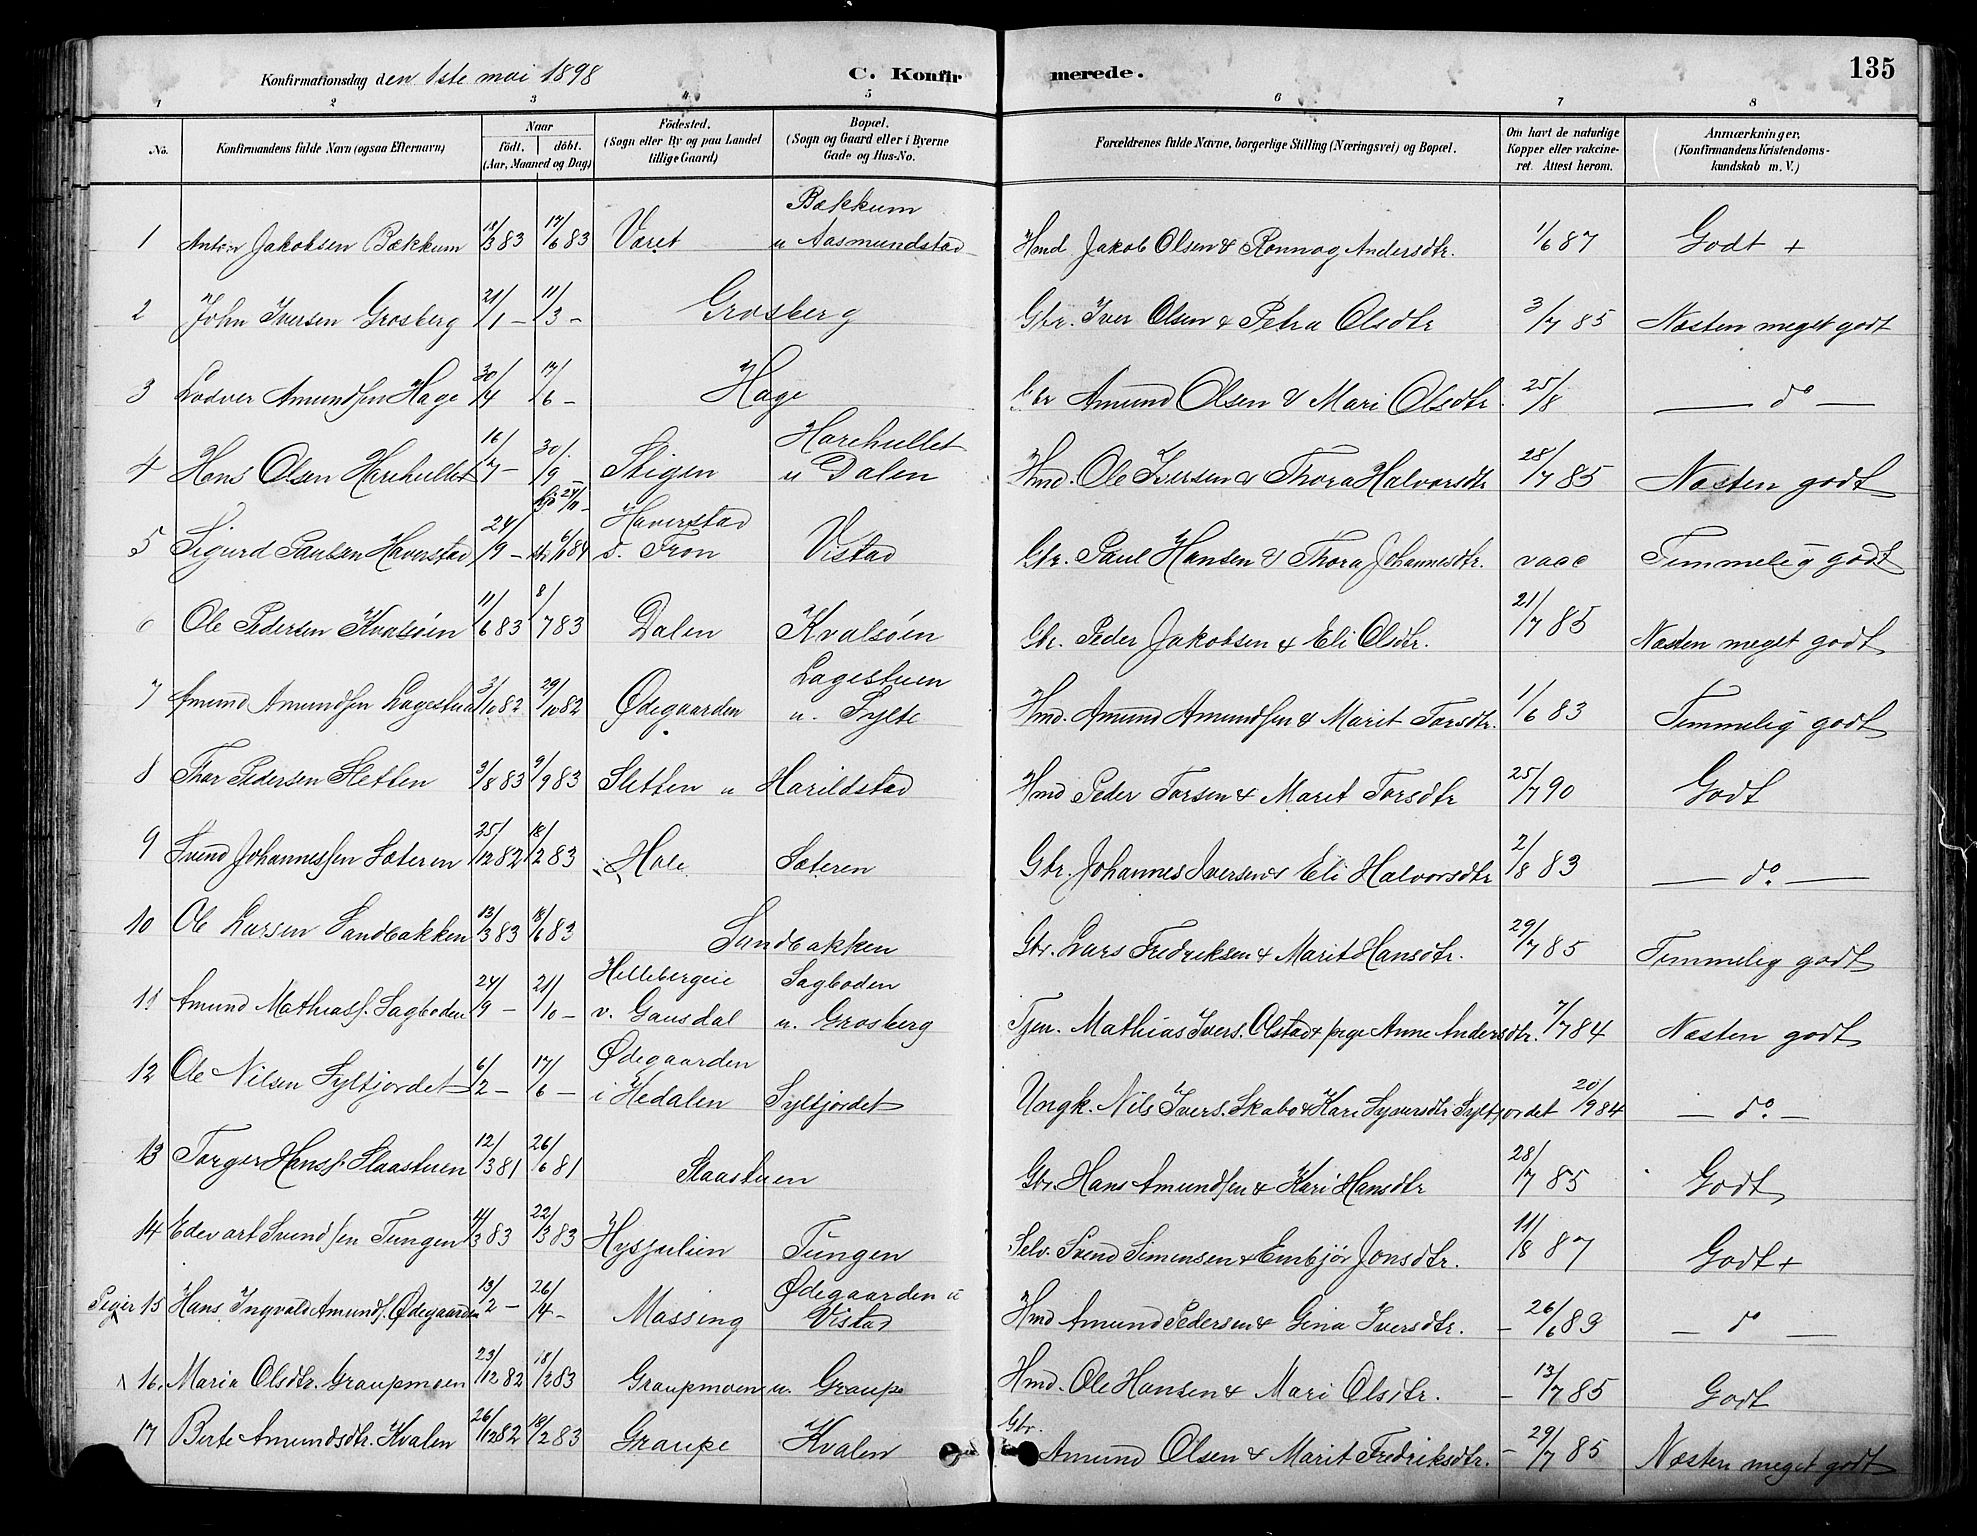 Konfirmationsdag den 1ste mai 1898 C. Konfirmerede. 135
1 2 3 4 5 6 7 8
No. Konfirmandens fulde Navn (ogsaa Efternavn) Naar født. døbt. (Aar, Maaned og Dag) Fødested. (Sogn eller By og paa Landet tillige Gaard) Bopæl. (Sogn og Gaard eller i Byerne Gade og Hus-No. Forældrenes fulde Navne, borgerlige Stilling (Næringsvei) og Bopæl. Om havt de naturlige Kopper eller vakcineret. Attest herom. Anmærkninger. (Konfirmandens Kristendomskundskab m. V.)
1 Anton Jakobsen Bækkum 18/3 83 17/6 83 Varet Bækkum u Aasmundstad Hmd Jakob Olsen & Ronnog Andersdtr. 1/6 87 Godt +
2 John Iversen Grosberg 21/1 - 11/3 - Grosberg Gbr. Iver Olsen & Petra Olsdtr 3/7 85 Næsten meget godt
3 Lodver Amundsen Hage 30/4 17/6 - Hage Gbr Amund Olsen & Mari Olsdtr. 25/8 — do —
4 Hans Olsen Harehullet 16/7 - 30/9 - Stigen Harehullet u Dalen Hmd. Ole Iversen & Thora Halvorsdtr 28/7 85 Næsten godt
5 Sigurd Paulsen Haverstad 24/9 - Haverstad S. Fron Vistad Gbr. Paul Hansen & Thora Johannesdtr. vacc Temmelig godt
6 Ole Pedersen Kvalsöen 11/6 83 8/7 83 Dalen Kvalsöen Gbr. Peder Jakobsen & Eli Olsdtr. 21/7 85 Næsten meget godt
7 Amund Amundsen Lagestuen 3/10 82 29/10 82 Ødegaarden Lagestuen u. Sylte Hmd. Amund Amundsen & Marit Torsdtr. 1/6 83 Temmelig godt
8 Thor Pedersen Sletten 3/8 83 9/9 83 Sletten u Harildstad Hmd Peder Torsen & Marit Torsdtr 25/7 90 Godt
9 Svend Johannessen Sæteren 25/12 82 18/2 83 Hole Sæteren Gbr. Johannes Iversen & Eli Halvorsdtr 2/8 83 — do. —
10 Ole Larsen Sandbakken 13/3 83 18/6 83 Sandbakken Gbr. Lars Fredriksen & Marit Hansdtr. 29/7 85 Temmelig godt
11 Amund Mathiass. Sagboden 24/9 - 21/10 - Hellebergeie v. Gausdal Sagboden u. Grosberg Tjen. Mathias Ivers. Olstad & pige Anne Andersdtr. 7/7 84 Næsten godt
12 Ole Nilsen Syltjordet 6/2 - 17/6 - Ødegaarden i Hedalen Syltjordet Ungk. Nils Ivers. Skabo & Kari Syversdtr Syltjordet 20/9 84 — do. —
13 Torger Hanss. Slaastuen 12/3 81 26/6 81 Slaastuen Gbr. Hans Amundsen & Kari Hansdtr 28/7 85 Godt
14 Edevart Svendsen Tungen 14/3 83 22/3 83 Hysjulien Tungen Selv. Svend Simensen & Embjør Jonsdtr. 11/8 87 Godt +
15 Hans Ingvald Amunds. Ødegaarden 13/2 - 26/4 - Massing Ødegaarden u Vistad Hmd Amund Pedersen & Gina Iversdtr. - 26/6 83 — do —
16. Maria Olsdtr. Graupmoen 23/12 82 18/2 83 Graupmoen u. Graupe Hmd. Ole Hansen & Mari Olsdtr. - 13/7 85 Godt
17 Berte Amundsdtr. Kvalen 26/12 82 18/2 83 Graupe Kvalen Gbr. Amund Olsen & Marit Fredriksdtr. - 29/7 85 Næsten meget godt